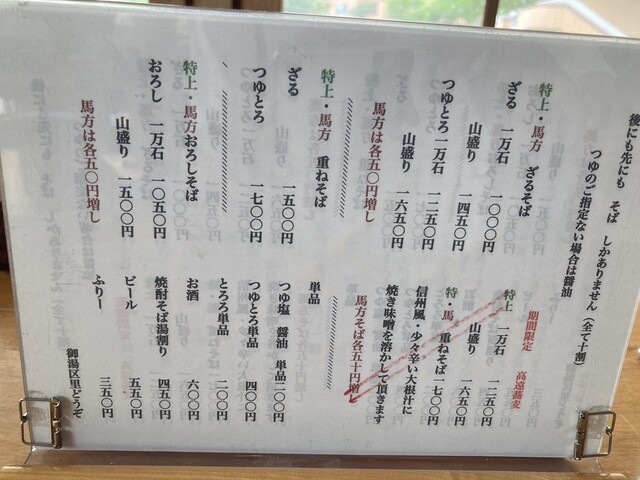 後にも先にも そば しかありません（全て十割）
つゆのご指定ない場合は醤油
特上・馬方 ざるそば
ざる 一万石 一〇〇〇円
山盛り 一四五〇円
つゆとろ一万石 一二五〇円
山盛り 一六五〇円
馬方は各五〇円増し
特上・馬方 重ねそば
ざる 一五〇〇円
つゆとろ 一七〇〇円
特上・馬方おろしそば
おろし 一万石 一〇五〇円
山盛り 一五〇〇円
馬方は各五〇円増し
・期間限定 高遠蕎麦
特上 一万石 一二五〇円
山盛り 一六五〇円
特・馬 重ねそば一七〇〇円
信州風・少々辛い大根汁に
焼き味噌を溶かして頂きます
馬方そば各五十円増し
単品
つゆ塩 醤油 単品二〇〇円
つゆとろ単品 四〇〇円
とろろ単品 二〇〇円
お酒 六〇〇円
焼酎そば湯割り 四五〇円
ビール 五五〇円
ふりー 三五〇円
御湯区里どうぞ